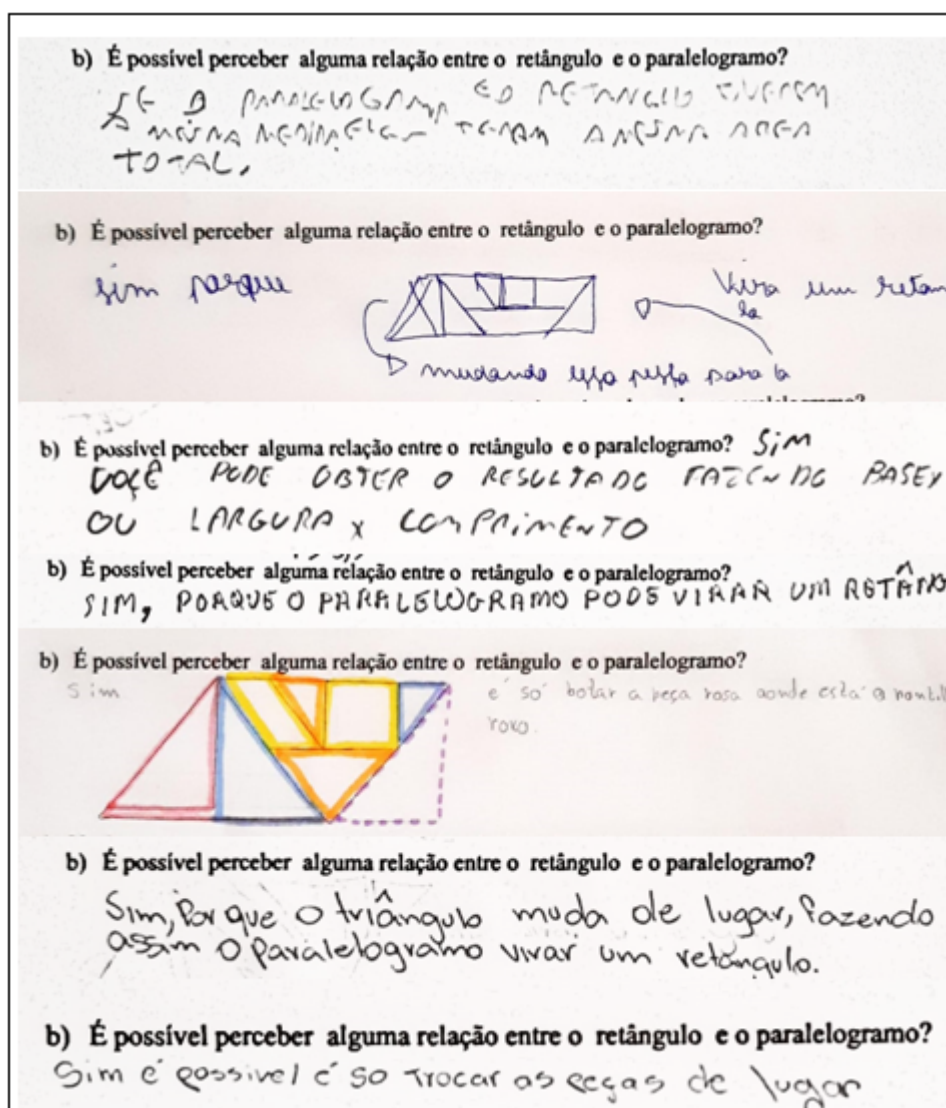 b) É possível perceber alguma relação entre o retângulo e o paralelogramo?
SE O PARALELOGRAMO E O RETANGULO TIVEREM
A MESMA MEDIDA ELES TERAM A MESMA AREA
TOTAL.
b) É possível perceber alguma relação entre o retângulo e o paralelogramo?
sim porque
Vira um retan
lo
mudando essa pessa para la
b) É possível perceber alguma relação entre o retângulo e o paralelogramo? SIM
VOCÊ PODE OBTER O RESULTADO FAZENDO BASEX
OU LARGURA X COMPRIMENTO
b) É possível perceber alguma relação entre o retângulo e o paralelogramo?
SIM, PORQUE O PARALELOGRAMO PODE VIRAR UM RETÂNG
b) É possível perceber alguma relação entre o retângulo e o paralelogramo?
Sim
é só botar a peça rosa aonde está o pontil
roxo.
b) É possível perceber alguma relação entre o retângulo e o paralelogramo?
Sim, Porque o triângulo muda de lugar, fazendo
assim o Paralelogramo virar um retângulo.
b) É possível perceber alguma relação entre o retângulo e o paralelogramo?
Sim é possivel é so trocar as peças de lugar